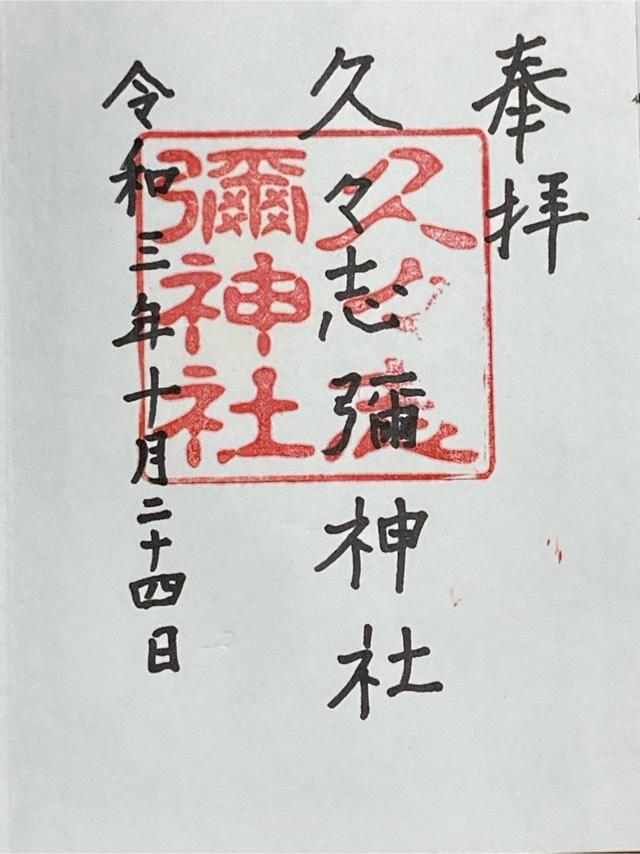 奉拝
久々志彌神社
令和三年十月二十四日
彌神社